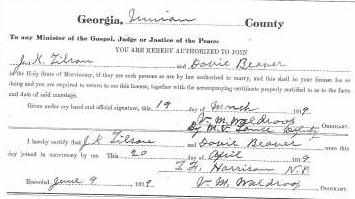 Georgia, Union County
To any Minister of the Gospel, Judge or Justice of the Peace:
YOU ARE HEREBY AUTHORIZED TO JOIN
Jas K. Tilson and Dovie Beaver
in the Holy State of Matrimony, if they are such persons as are by law authorized to marry, and this shall be your license for so
doing and you are required to return to me this license, together with the accompanying certificate properly certified to as to the facts
and date of said marriage.
Given under my hand and official signature, this 19 day of March 1919
V. M. Waldroop Ordinary.
By M. C. Deputy
I hereby certify that J. K. Tilson and Dovie Beaver were this
day joined in matrimony by me. This 20 day of April 1919
T. H. Harrison N.P.
Recorded June 9 1919. V. M. Waldroop, Ordinary.